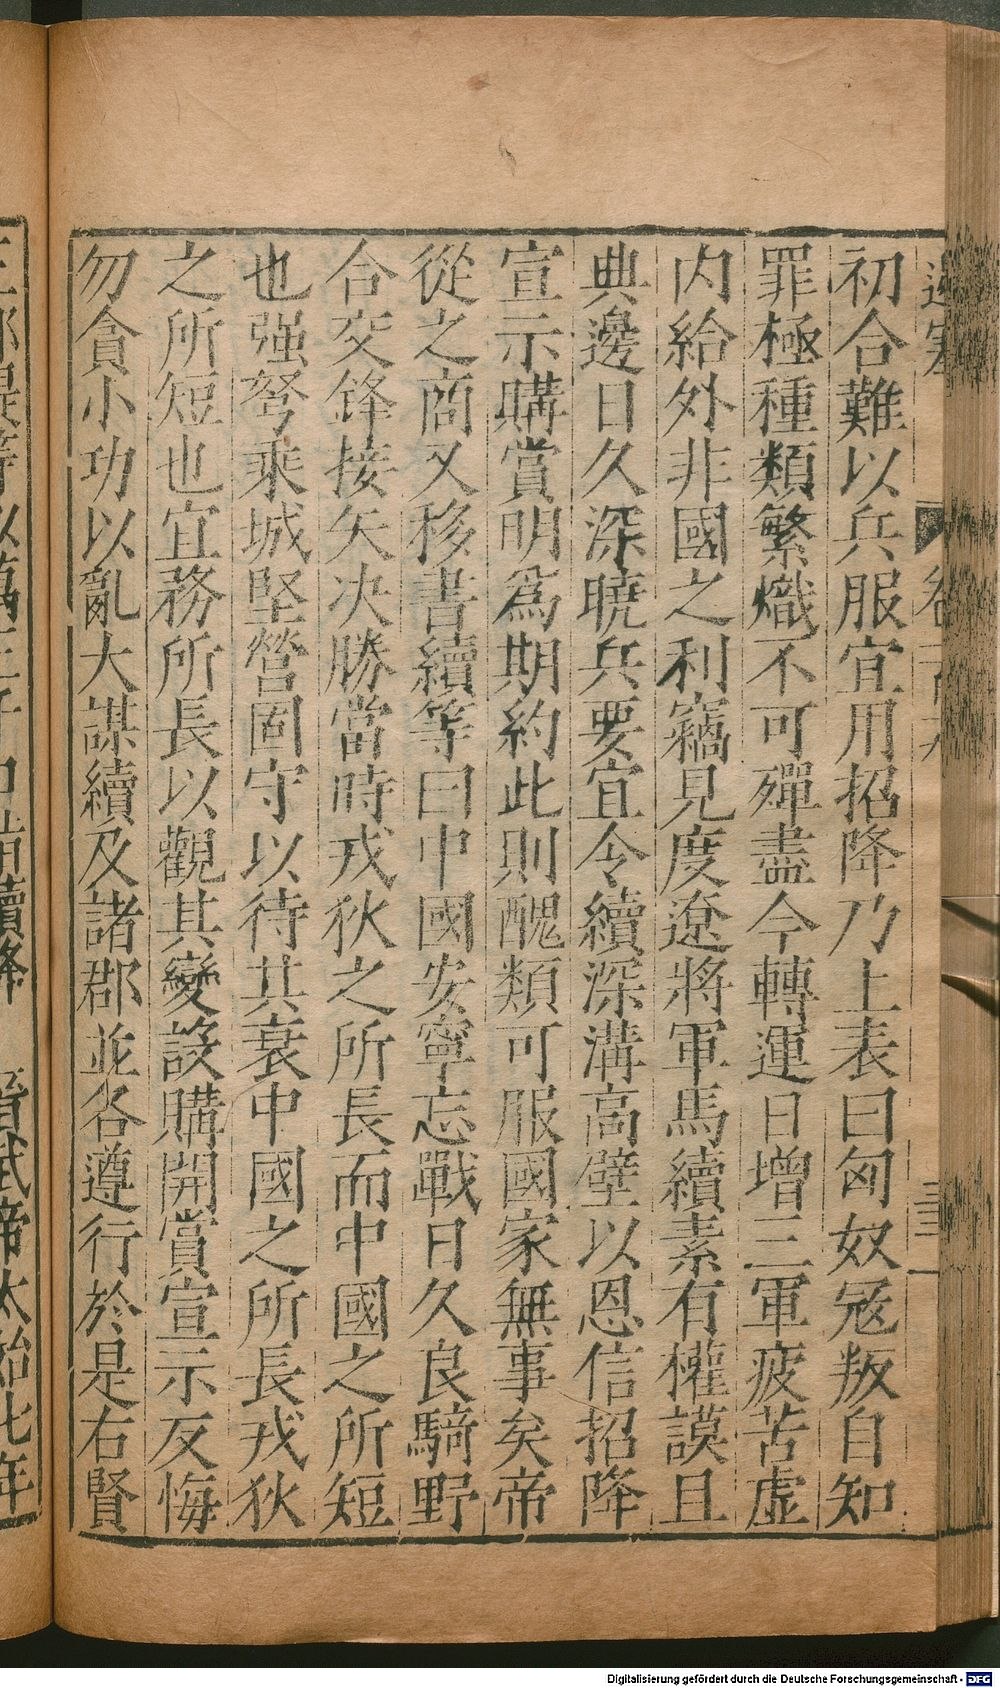 初合難以兵服宜用招降乃上表曰匈奴寇叛自知
罪極種類繁熾不可殫盡今轉運日增三軍疲苦虛
內給外非國之利竊見度遼將軍馬續素有權謨且
典邊日久深曉兵要宜令續深溝高壁以恩信招降
宣示購賞明爲期約此則醜類可服國家無事矣帝
從之商又移書續等曰中國安寧忘戰日久良騎野
合交鋒接矢决勝當時戎狄之所長而中國之所短
也强弩乘城堅營固守以待其衰中國之所長戎狄
之所短也宜務所長以觀其變設購開賞宣示反悔
勿貪小功以亂大謀續及諸郡並各遵行於是右賢
晉武帝太始七年
Digitalisierung gefördert durch die Deutsche Forschungsgemeinschaft - DFG